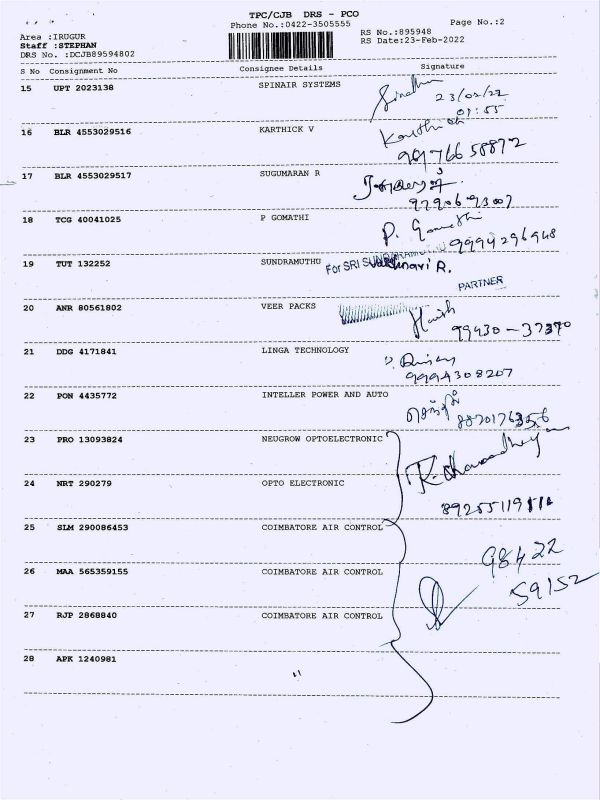 TPC/CJB DRS - PCO
Phone No.:0422-3505555
Page No.:2
Area :IRUGUR
RS No.:895948
Staff :STEPHAN
RS Date:23-Feb-2022
DRS No. :DCJB89594802
S No Consignment No Consignee Details Signature
15 UPT 2023138 SPINAIR SYSTEMS
23/02/22
01:55
16 BLR 4553029516 KARTHICK V
Karthick
90176658872
17 BLR 4553029517 SUGUMARAN R
9790693007
18 TCG 40041025 P GOMATHI
P. Gomathi
9994296948
19 TUT 132252 SUNDRAMUTHU
For SRI
R.
PARTNER
20 ANR 80561802 VEER PACKS
99430-37370
21 DDG 4171841 LINGA TECHNOLOGY
9994308207
22 PON 4435772 INTELLER POWER AND AUTO
23 PRO 13093824 NEUGROW OPTOELECTRONIC
24 NRT 290279 OPTO ELECTRONIC
25 SLM 290086453 COIMBATORE AIR CONTROL
98422
59152
26 MAA 565359155 COIMBATORE AIR CONTROL
27 RJP 2868840 COIMBATORE AIR CONTROL
28 APK 1240981
"